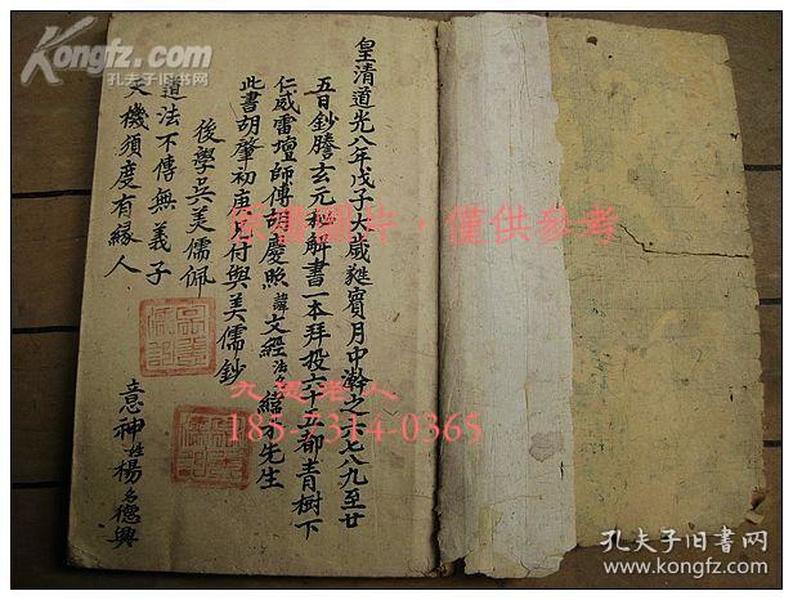 皇清道光八年戊子大歲蕤賓月中澣之六七八九至廿
五日鈔謄玄元秘解書一本拜投六十五都青樹下
仁威雷壇師傅胡慶照諱文經法名緯才先生
此書胡肇初庚兄付與美儒鈔
後學吳美儒佩
道法不傳無義子
天機須度有緣人
意神姓楊名德興
原書圖片，僅供參考
九凝老人
185-7314-0365
Kongfz.com
孔夫子旧书网
孔夫子旧书网
www.kongfz.com